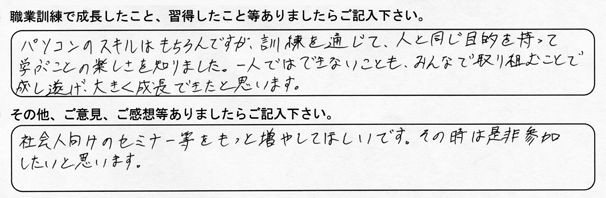 職業訓練で成長したこと、習得したこと等ありましたらご記入下さい。
パソコンのスキルはもちろんですが、訓練を通じて、人と同じ目的を持って
学ぶことの楽しさを知りました。一人ではできないことも、みんなで取り組むことで
成し遂げ、大きく成長できたと思います。
その他、ご意見、ご感想等ありましたらご記入下さい。
社会人向けのセミナー等をもっと増やしてほしいです。その時は是非参加
したいと思います。